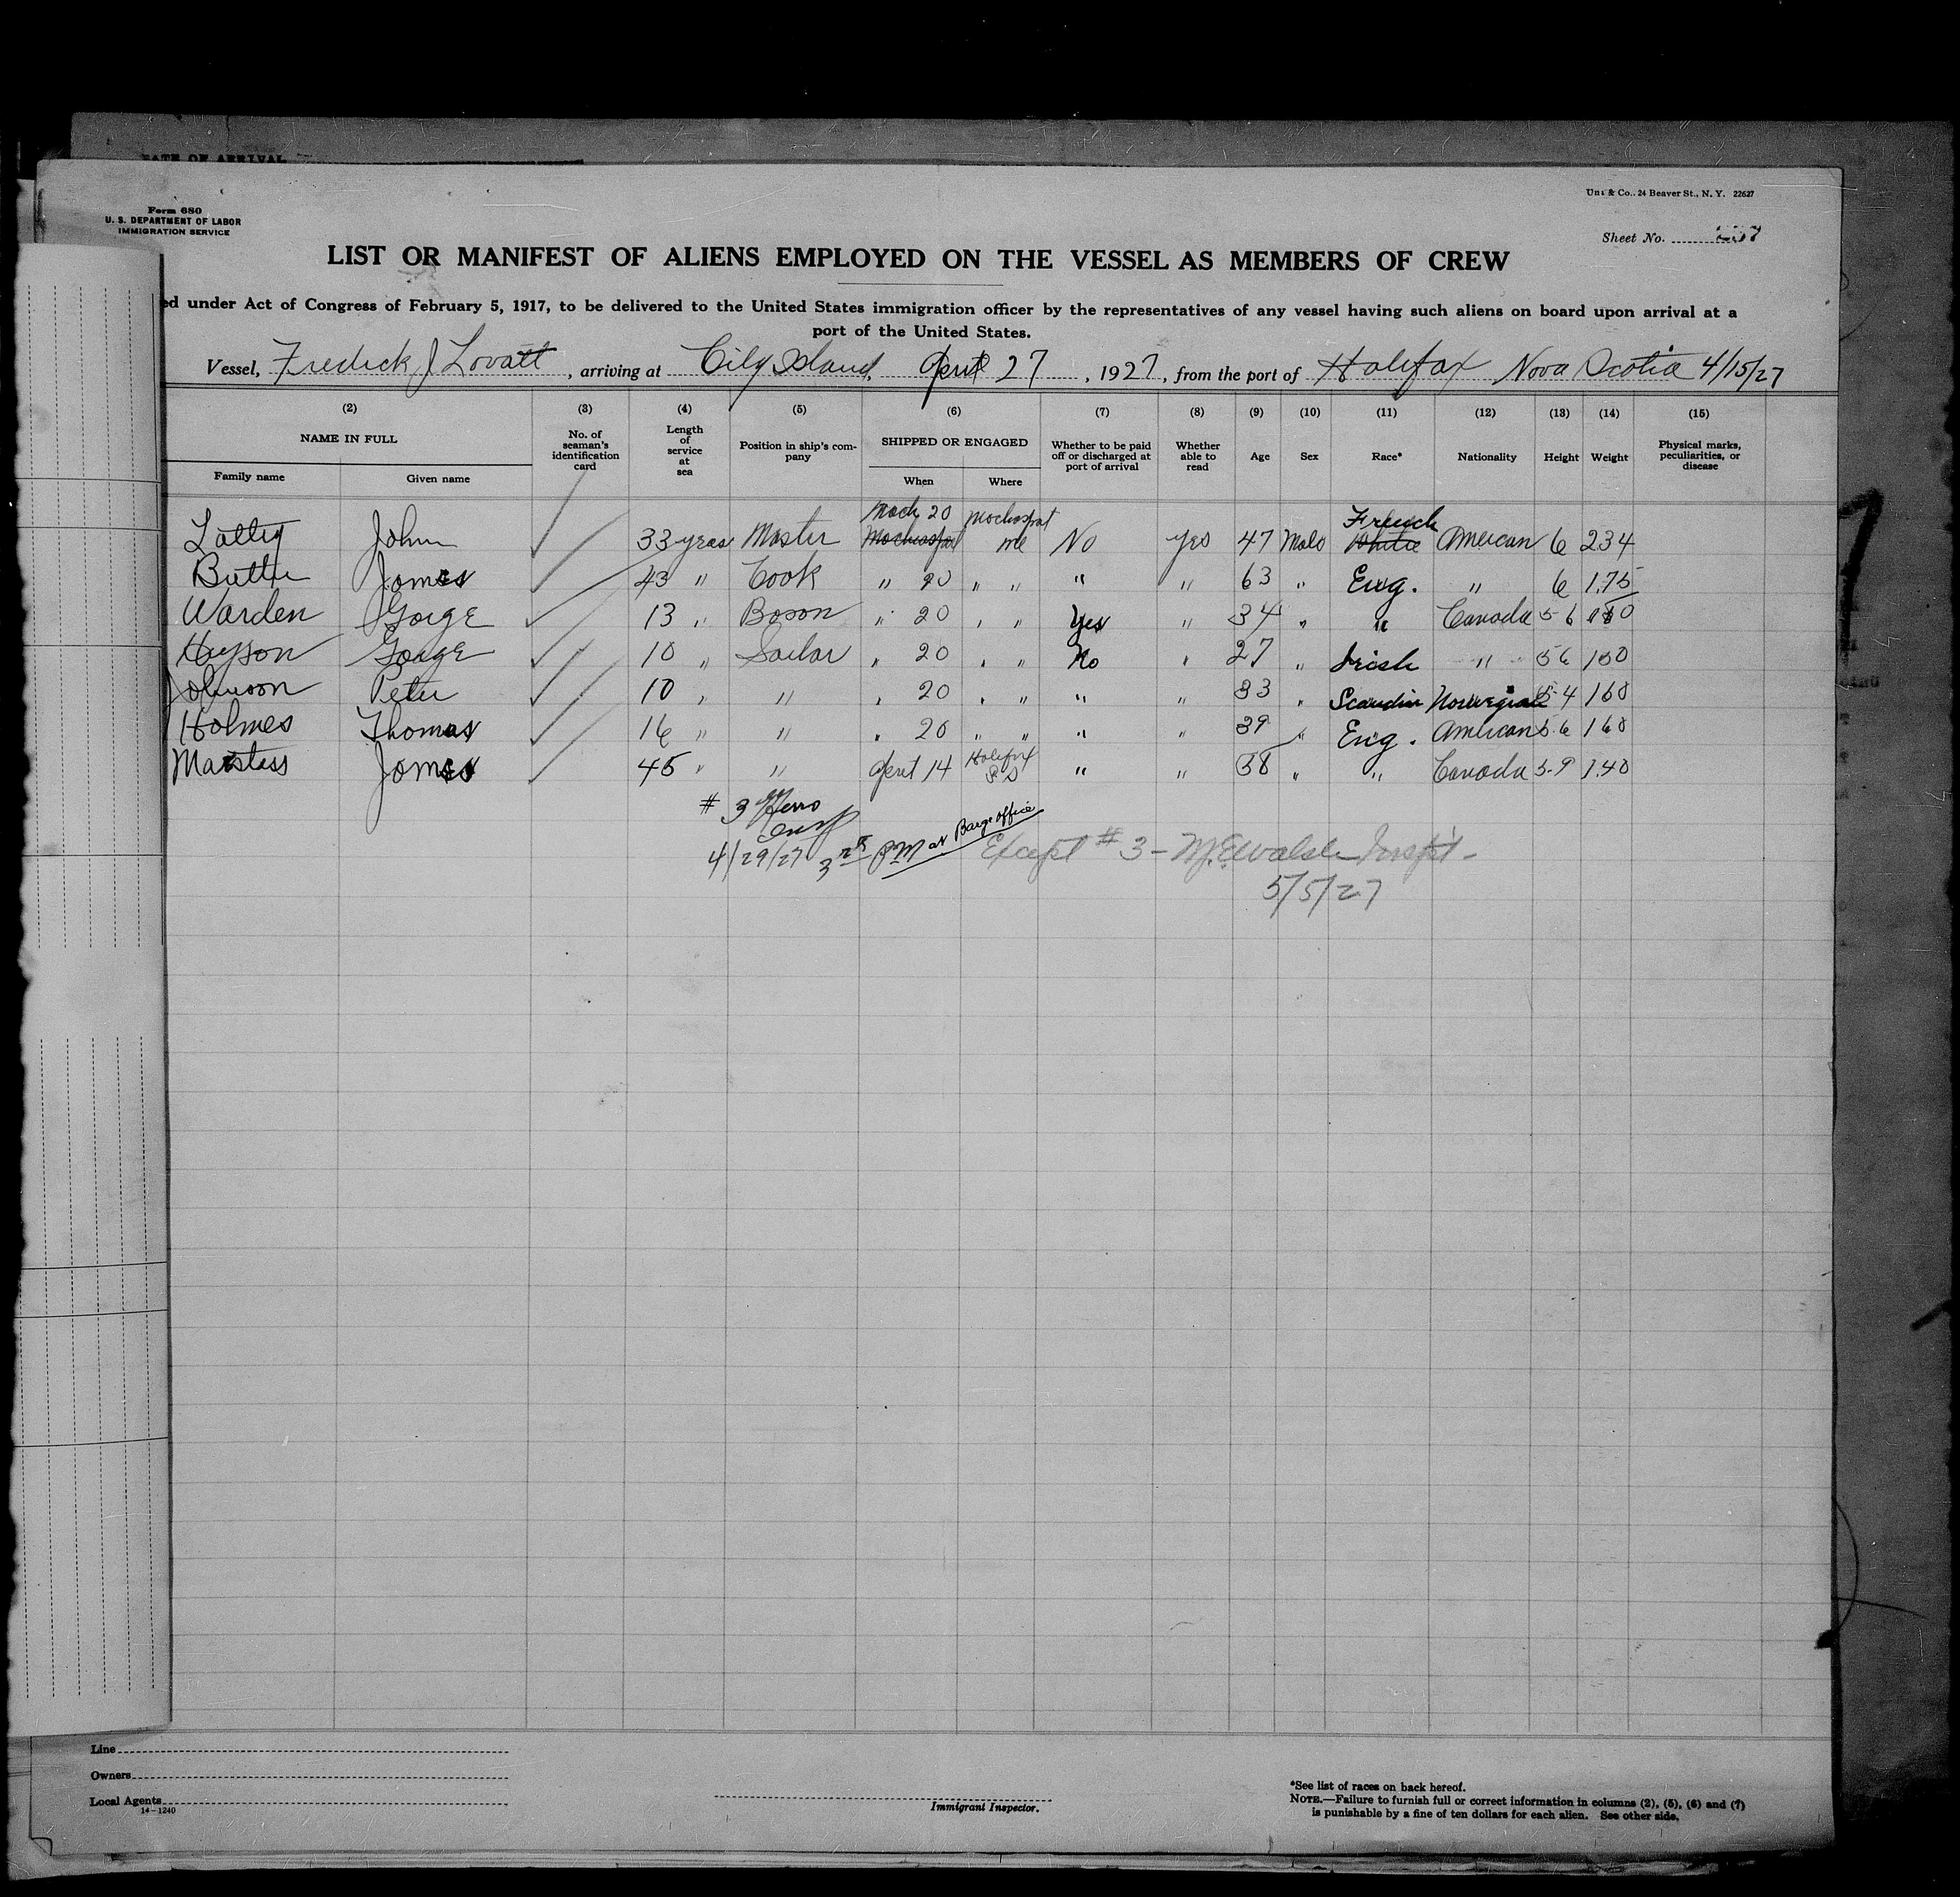 DATE OF ARRIVAL
& Co., 24 Beaver St., N. Y. 22627
Form 680
U. S. DEPARTMENT OF LABOR
IMMIGRATION SERVICE
Sheet No.
LIST OR MANIFEST OF ALIENS EMPLOYED ON THE VESSEL AS MEMBERS OF CREW
ed under Act of Congress of February 5, 1917, to be delivered to the United States immigration officer by the representatives of any vessel having such aliens on board upon arrival at a
port of the United States.
Vessel, Fredick J Lovatt, arriving at City Island, April 27, 1927, from the port of Halifax Nova Scotia 4/15/27
(2) (3) (4) (5) (6) (7) (8) (9) (10) (11) (12) (13) (14) (15)
NAME IN FULL No. of seaman's identification card Length of service at sea Position in ship's company SHIPPED OR ENGAGED Whether to be paid off or discharged at port of arrival Whether able to read Age Sex Race* Nationality Height Weight Physical marks, peculiarities, or disease
Family name Given name When Where
John 33 years Master 20 me No yes 47 Male French White American 6 234
James 43 " Cook " 20 " " " " 63 " Eng. " 6 175
Warden Gorge 13 " Boson " 20 " " Yes " 34 " " Canada 5 6
Hyson Goage 10 " Sailor " 20 " " No " 27 " Irish " 5 6 150
Johnson Peter 10 " " " 20 " " " " 33 " Scandin Norwegian 5-4 160
Holmes Thomas 16 " " " 20 " " " " 39 " Eng. American 5.6 160
James 45 " " April 14 Halifax " " 58 " " Canada 5-9 140
# 3
4/29/27 PM at Barge office
Except # 3 - M.E. Walsh Inspt -
5/5/27
Line
Owners
Local Agents
14-1240
Immigrant Inspector.
*See list of races on back hereof.
NOTE.—Failure to furnish full or correct information in columns (2), (5), (6) and (7)
is punishable by a fine of ten dollars for each alien. See other side.